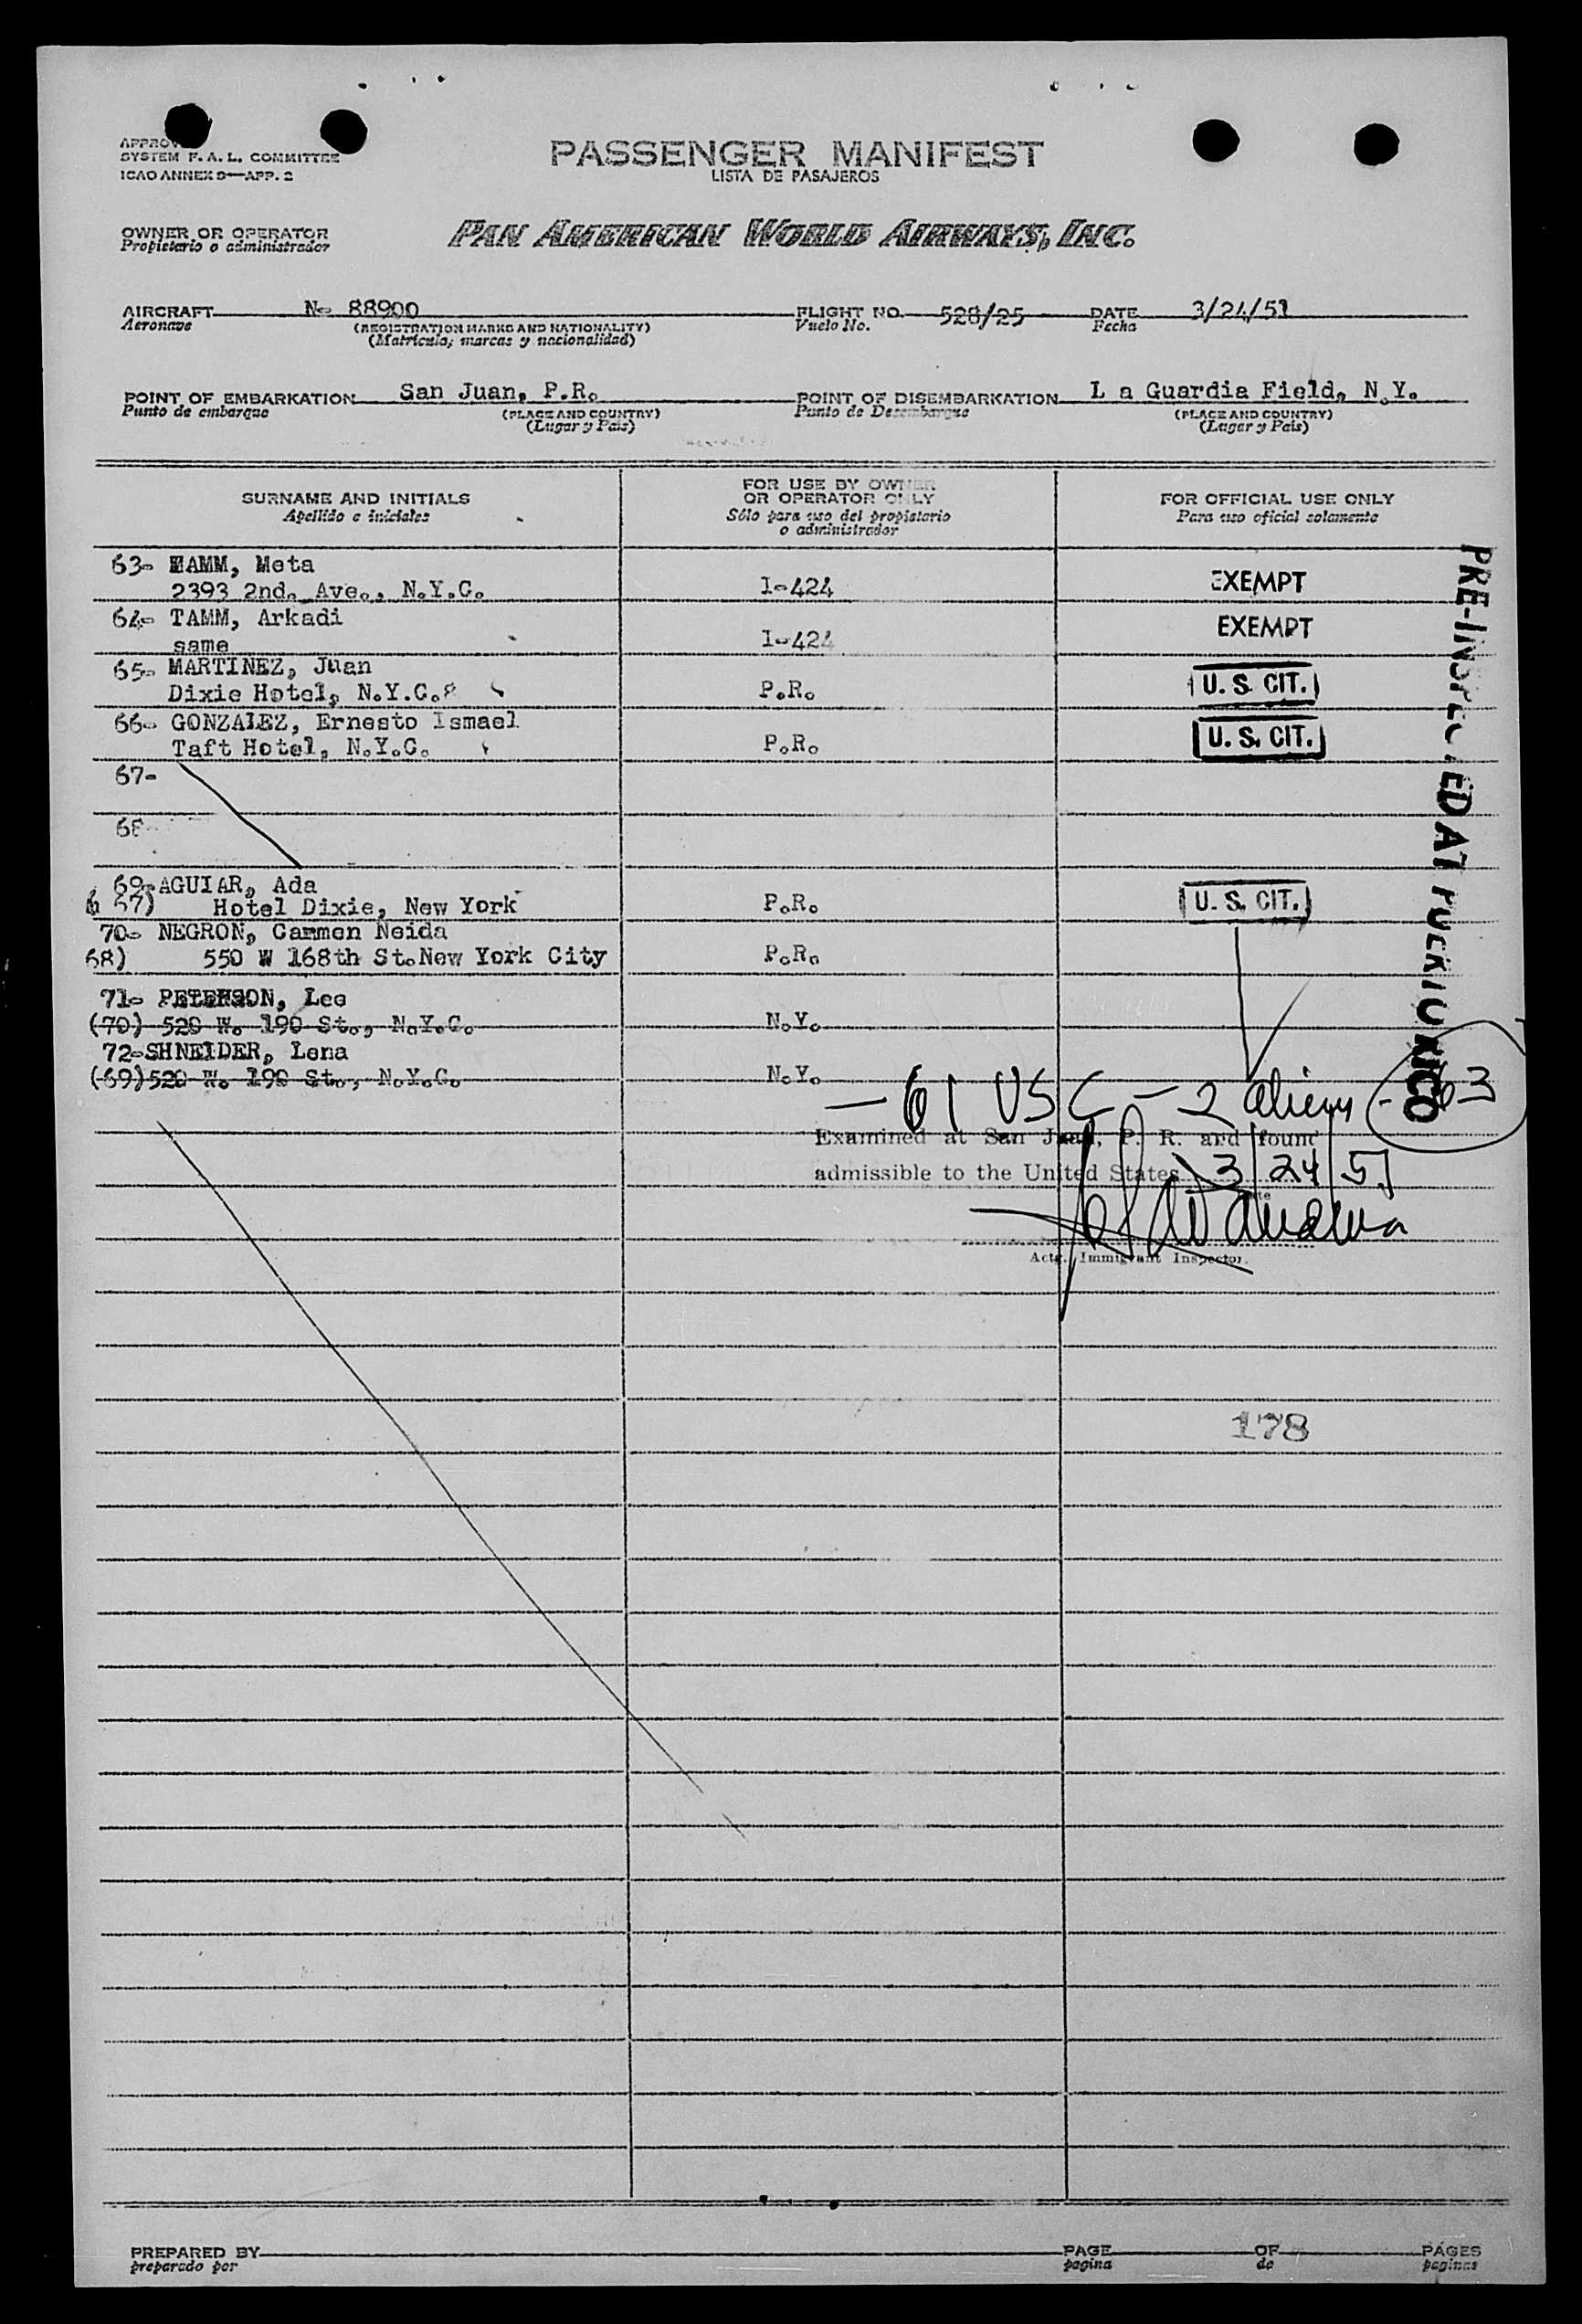 SYSTEM F. A. L. COMMITTEE
ICAO ANNEX 9—APP. 2
PASSENGER MANIFEST
LISTA DE PASAJEROS
OWNER OR OPERATOR
Propietario o administrador
PAN AMERICAN WORLD AIRWAYS, INC.
AIRCRAFT N- 88900 FLIGHT NO. 528/25 DATE 3/24/51
Aeronave (REGISTRATION MARKS AND NATIONALITY) Vuelo No. Fecha
(Matrícula, marcas y nacionalidad)
POINT OF EMBARKATION San Juan, P.R. POINT OF DISEMBARKATION L a Guardia Field, N.Y.
Punto de embarque (PLACE AND COUNTRY) Punto de Desembarque (PLACE AND COUNTRY)
(Lugar y País) (Lugar y País)
SURNAME AND INITIALS
Apellido e iniciales
FOR USE BY OWNER
OR OPERATOR ONLY
Sólo para uso del propietario
o administrador
FOR OFFICIAL USE ONLY
Para uso oficial solamente
63- TAMM, Meta
2393 2nd. Ave., N.Y.C. I-424 EXEMPT
64- TAMM, Arkadi EXEMPT
same I-424
65- MARTINEZ, Juan
Dixie Hotel, N.Y.C. P.R. U. S. CIT.
66- GONZALEZ, Ernesto Ismael
Taft Hotel, N.Y.C. P.R. U. S. CIT.
67-
68-
69- AGUIAR, Ada
67) Hotel Dixie, New York P.R. U. S. CIT.
70- NEGRON, Carmen Neida
68) 550 W 168th St. New York City P.R.
71- PETERSON, Lee
(70) 520 W. 190 St., N.Y.C. N.Y.
72- SHNEIDER, Lena
(69) 520 W. 190 St., N.Y.C. N.Y.
PRE-INSPECTED AT PUERTO RICO
— 61 USC — 2 aliens - 63
Examined at San Juan, P. R. and found
admissible to the United States 3/24/51
Actg. Immigrant Inspector.
178
PREPARED BY PAGE OF PAGES
preparado por pagina de paginas